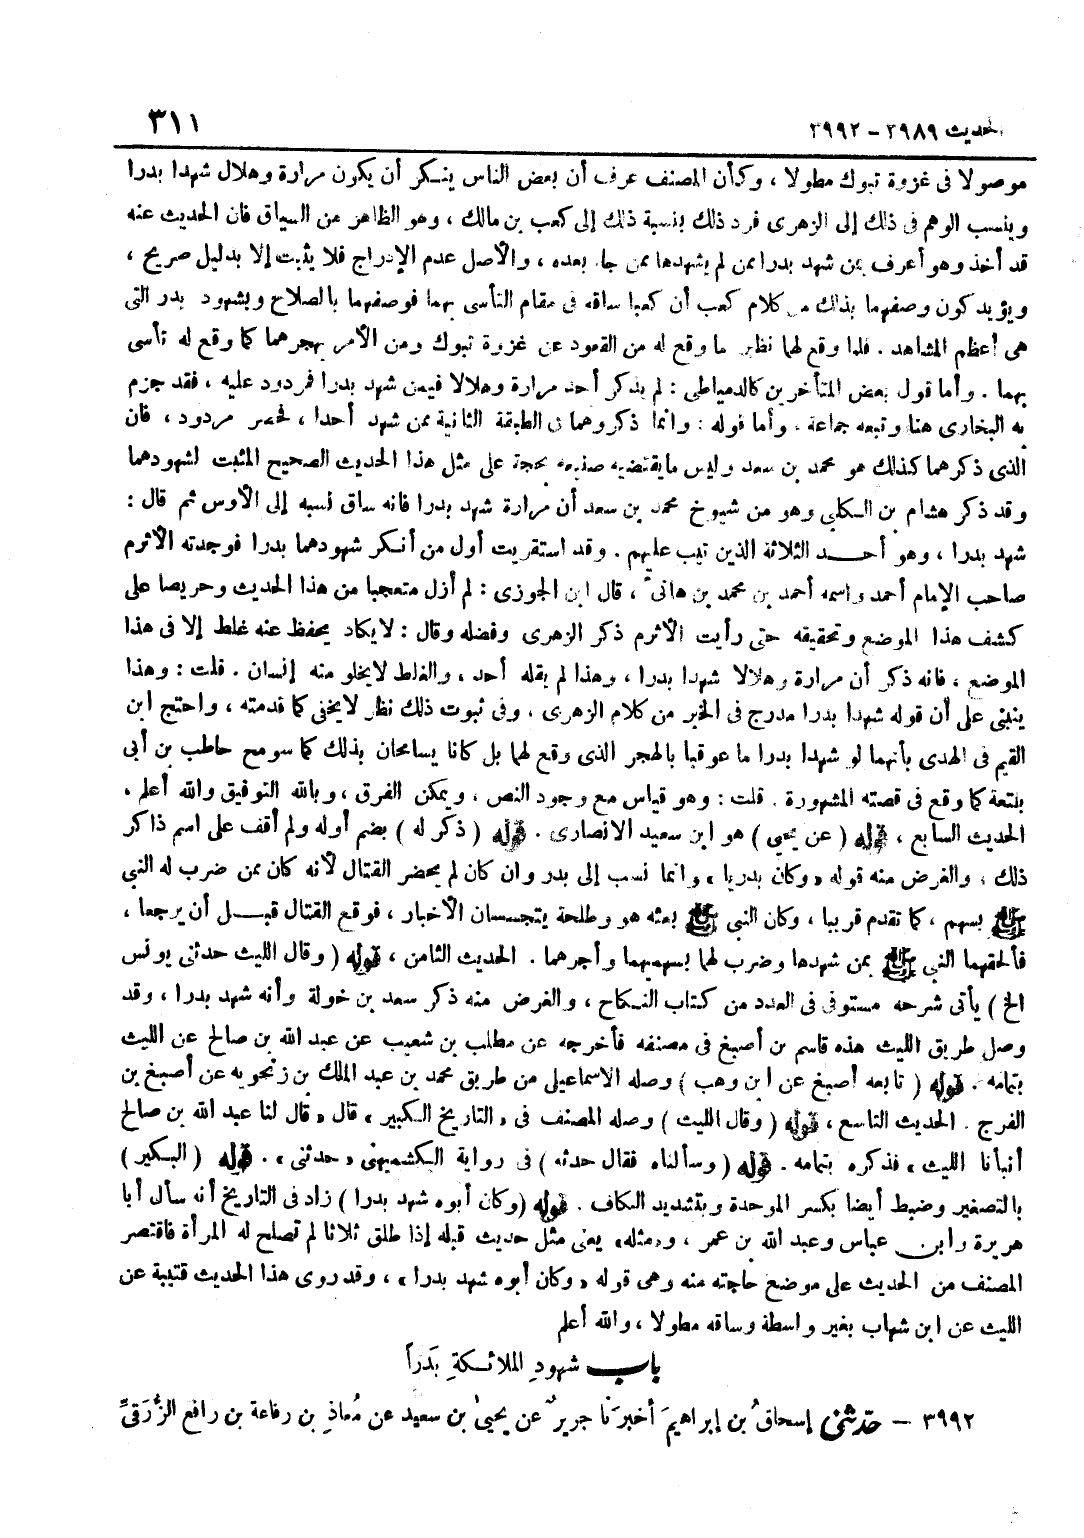 الحديث ٣٩٨٩ - ٣٩٩٢
٣١١
موصولا فى غزوة تبوك مطولا ، وكأن المصنف عرف أن بعض الناس ينكر أن يكون مرارة وهلال شهدا بدرا
وينسب الوهم فى ذلك إلى الزهرى فرد ذلك بنسبة ذلك إلى كعب بن مالك ، وهو الظاهر من السياق فان الحديث عنه
قد أخذ وهو أعرف بمن شهد بدرا ممن لم يشهدها ممن جاء بعده ، والأصل عدم الإدراج فلا يثبت إلا بدليل صريح ،
ويؤيد كون وصفهما بذلك من كلام كعب أن كعبا ساقه فى مقام التأسى بهما فوصفهما بالصلاح وبشهود بدر التى
هى أعظم المشاهد . فلما وقع لهما نظير ما وقع له من القعود عن غزوة تبوك ومن الأمر بهجرهما كما وقع له تأسى
بهما . وأما قول بعض المتأخرين كالدمياطى : لم يذكر أحد مرارة وهلالا فيمن شهد بدرا فمردود عليه ، فقد جزم
به البخارى هنا وتبعه جماعة . وأما قوله : وانما ذكروهما فى الطبقة الثانية ممن شهد أحدا ، فحصر مردود ، فان
الذى ذكرهما كذلك هو محمد بن سعد وليس ما يقتضيه صنيعه بحجة على مثل هذا الحديث الصحيح المثبت لشهودهما
وقد ذكر هشام بن الكلبى وهو من شيوخ محمد بن سعد أن مرارة شهد بدرا فانه ساق نسبه إلى الأوس ثم قال :
شهد بدرا ، وهو أحد الثلاثة الذين تيب عليهم . وقد استقريت أول من أنكر شهودهما بدرا فوجدته الأثرم
صاحب الإمام أحمد واسمه أحمد بن محمد بن هانئ ، قال ابن الجوزى : لم أزل متعجبا من هذا الحديث وحريصا على
كشف هذا الموضع وتحقيقه حتى رأيت الأثرم ذكر الزهرى وفضله وقال : لا يكاد يحفظ عنه غلط إلا فى هذا
الموضع ، فانه ذكر أن مرارة وهلالا شهدا بدرا ، وهذا لم يقله أحد ، والغلط لا يخلو منه إنسان . قلت : وهذا
ينبنى على أن قوله شهدا بدرا مدرج فى الخبر من كلام الزهرى ، وفى ثبوت ذلك نظر لا يخفى كما قدمته ، واحتج ابن
القيم فى الهدى بأنهما لو شهدا بدرا ما عوقبا بالهجر الذى وقع لهما بل كانا يسامحان بذلك كما سومح حاطب بن أبى
بلتعة كما وقع فى قصته المشهورة . قلت : وهو قياس مع وجود النص ، ويمكن الفرق ، وبالله التوفيق والله أعلم .
الحديث السابع ، قوله ( عن يحيى ) هو ابن سعيد الانصارى . قوله ( ذكر له ) بضم أوله ولم أقف على اسم ذاكر
ذلك ، والغرض منه قوله « وكان بدريا » وانما نسب إلى بدر وان كان لم يحضر القتال لأنه كان ممن ضرب له النبى
ﷺ بسهم ، كما تقدم قريبا ، وكان النبى ﷺ بعثه هو وطلحة يتجسسان الأخبار ، فوقع القتال قبل أن يرجعا ،
فألحقهما النبى ﷺ بمن شهدها وضرب لهما بسهميهما وأجرهما . الحديث الثامن ، قوله ( وقال الليث حدثنى يونس
الخ ) يأتى شرحه مستوفى فى العدد من كتاب النكاح ، والغرض منه ذكر سعد بن خولة وأنه شهد بدرا ، وقد
وصل طريق الليث هذه قاسم بن أصبغ فى مصنفه فأخرجه عن مطلب بن شعيب عن عبد الله بن صالح عن الليث
بتمامه . قوله ( تابعه أصبغ عن ابن وهب ) وصله الاسماعيلى من طريق محمد بن عبد الملك بن زنجويه عن أصبغ بن
الفرج . الحديث التاسع ، قوله ( وقال الليث ) وصله المصنف فى « التاريخ الكبير » قال « قال لنا عبد الله بن صالح
أنبأنا الليث » فذكره بتمامه . قوله ( وسألناه فقال حدثه ) فى رواية الكشميهنى « حدثنى » . قوله ( البكير )
بالتصغير وضبط أيضا بكسر الموحدة وبتشديد الكاف . قوله ( وكان أبوه شهد بدرا ) زاد فى التاريخ أنه سأل أبا
هريرة وابن عباس وعبد الله بن عمر ، ومثله ، يعنى مثل حديث قبله إذا طلق ثلاثا لم تصلح له المرأة فاقتصر
المصنف من الحديث على موضع حاجته منه وهى قوله « وكان أبوه شهد بدرا » ، وقد روى هذا الحديث قتيبة عن
الليث عن ابن شهاب بغير واسطة وساقه مطولا ، والله أعلم
باب شهودِ الملائكةِ بَدراً
٣٩٩٢ - حدّثني إسحاقُ بن إبراهيمَ أخبرَنا جريرٌ عن يحيىٰ بن سعيد عن مُعاذِ بن رفاعة بن رافع الزُّرَقيِّ